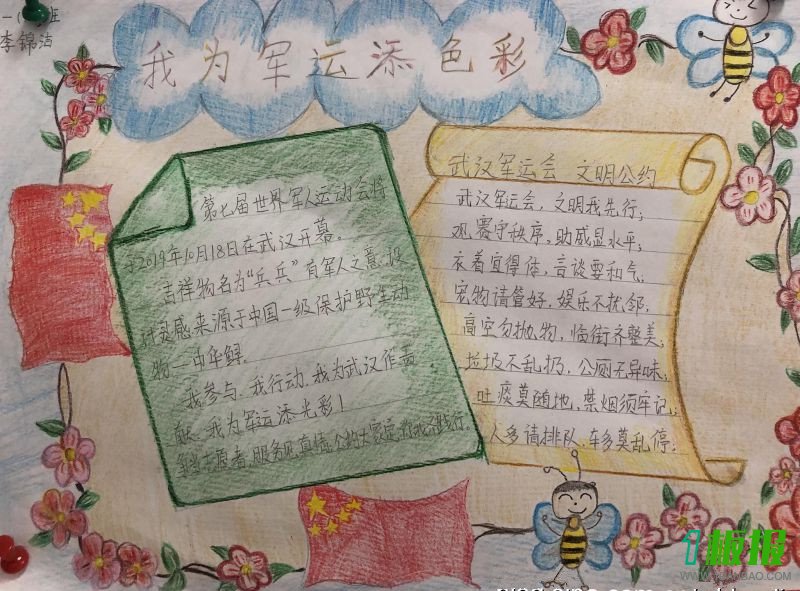 一(
班
李锦洁
我为军运添色彩
第七届世界军人运动会将
于2019年10月18日在武汉开幕。
吉祥物名为“兵兵”有军人之意,设
计灵感来源于中国一级保护野生动
物—中华鲟。
我参与、我行动、我为武汉作贡
献、我为军运添光彩!
争当志愿者,服务见真情,公约大家定,你我齐践行
武汉军运会 文明公约
武汉军运会,文明我先行;
观赛守秩序,助威显水平;
衣着宜得体,言谈要和气,
宠物请管好,娱乐不扰邻;
高空勿抛物,临街齐整美;
垃圾不乱扔,公厕无异味;
吐痰莫随地,禁烟须牢记;
人多请排队,车多莫乱停;
1板报